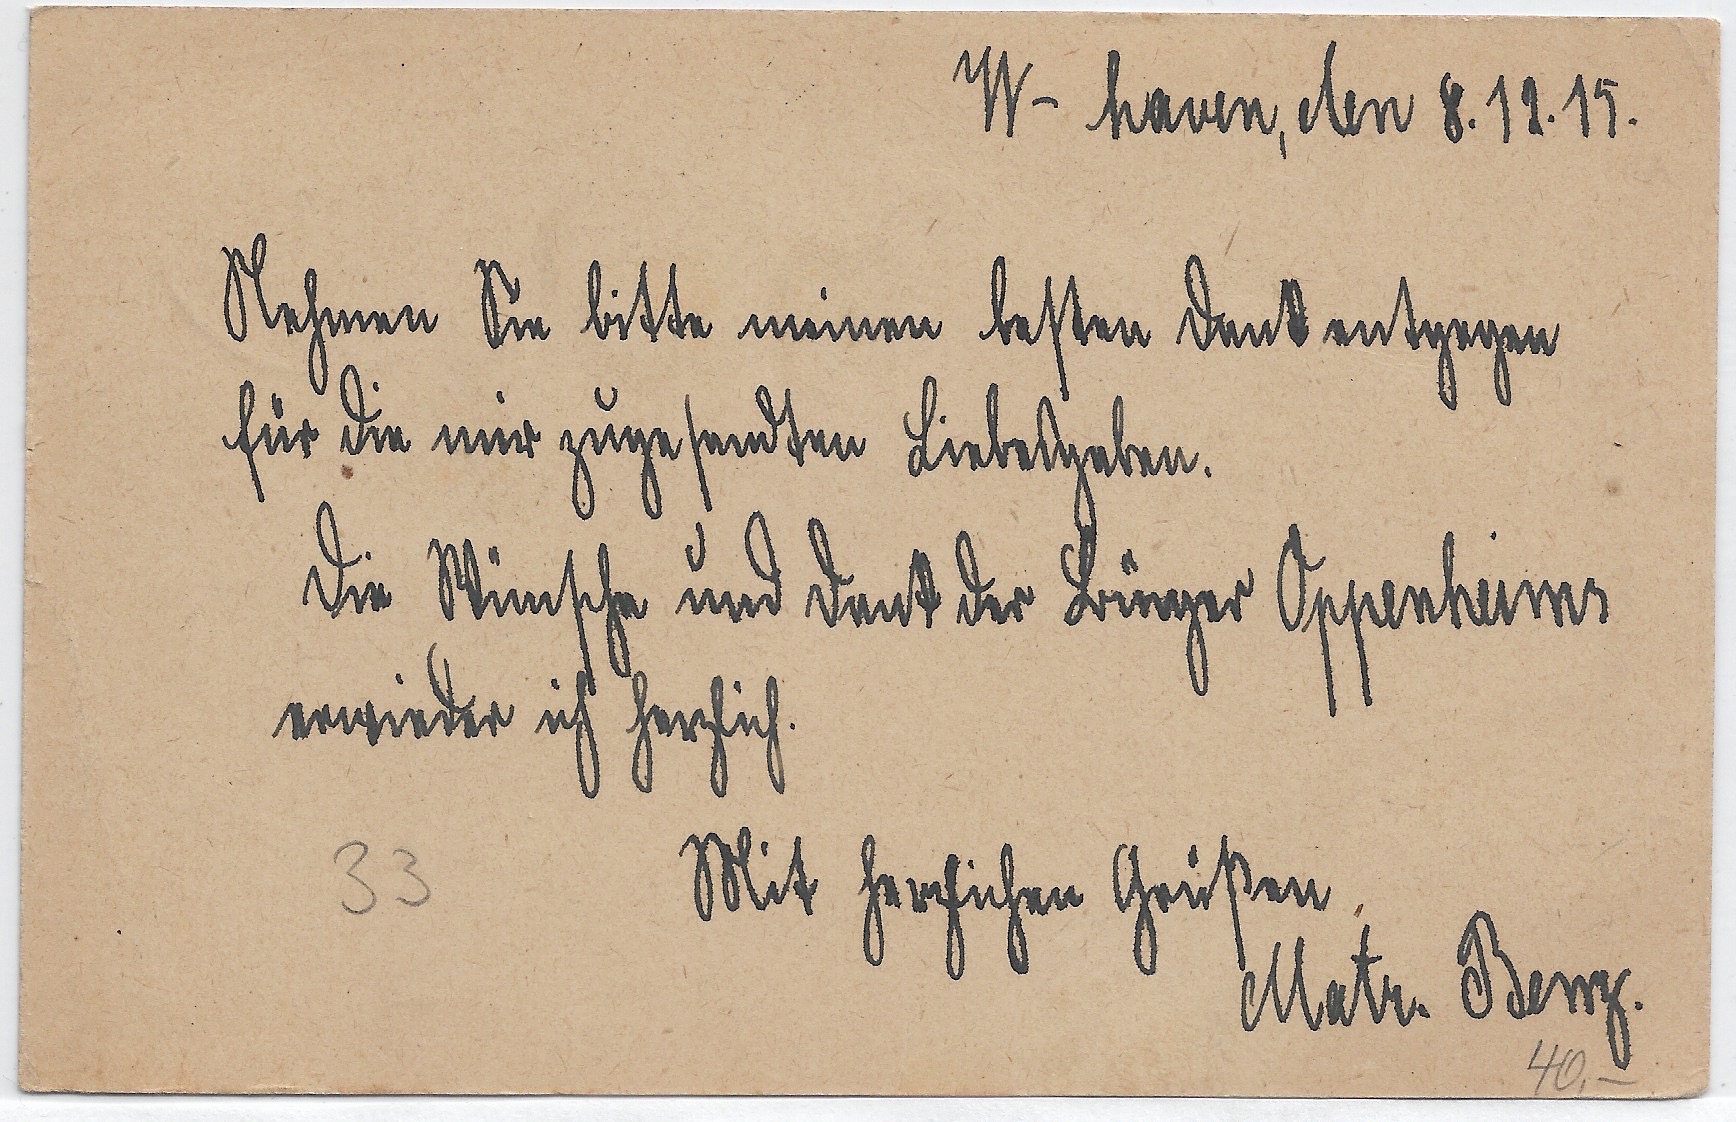 W-haven, den 8.12.15.
Nehmen Sie bitte meinen besten Dank entgegen
für die mir zugesendten Liebesgaben.
Die Wünsche und Dank der Bürger Oppenheims
erwieder ich herzlich.
33
Mit herzlichen Grüßen
Matr. Benz.
40,-